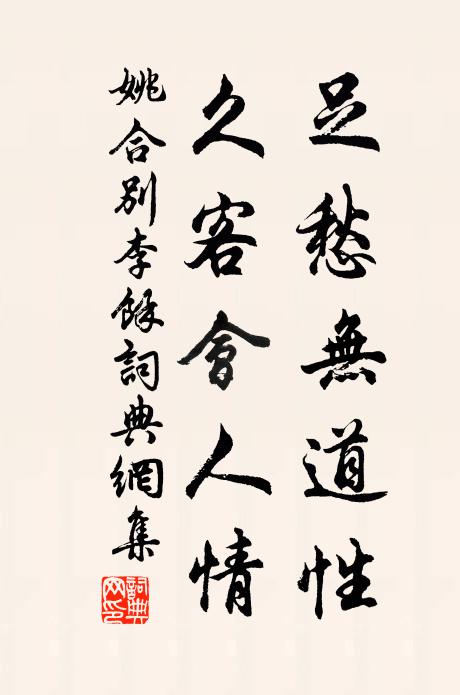 足愁無道性
久客會人情
姚合別李餘詞典網集
詞典網印